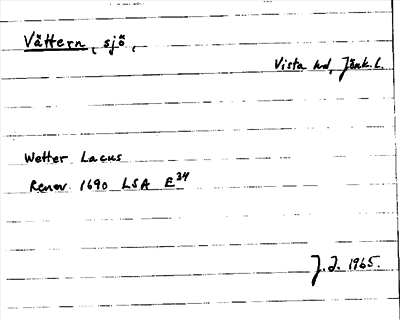 Vättern, sjö,
Vista hd, Jönk. l.
Wetter Lacus
Renov. 1690 LSA E34
J. J. 1965.